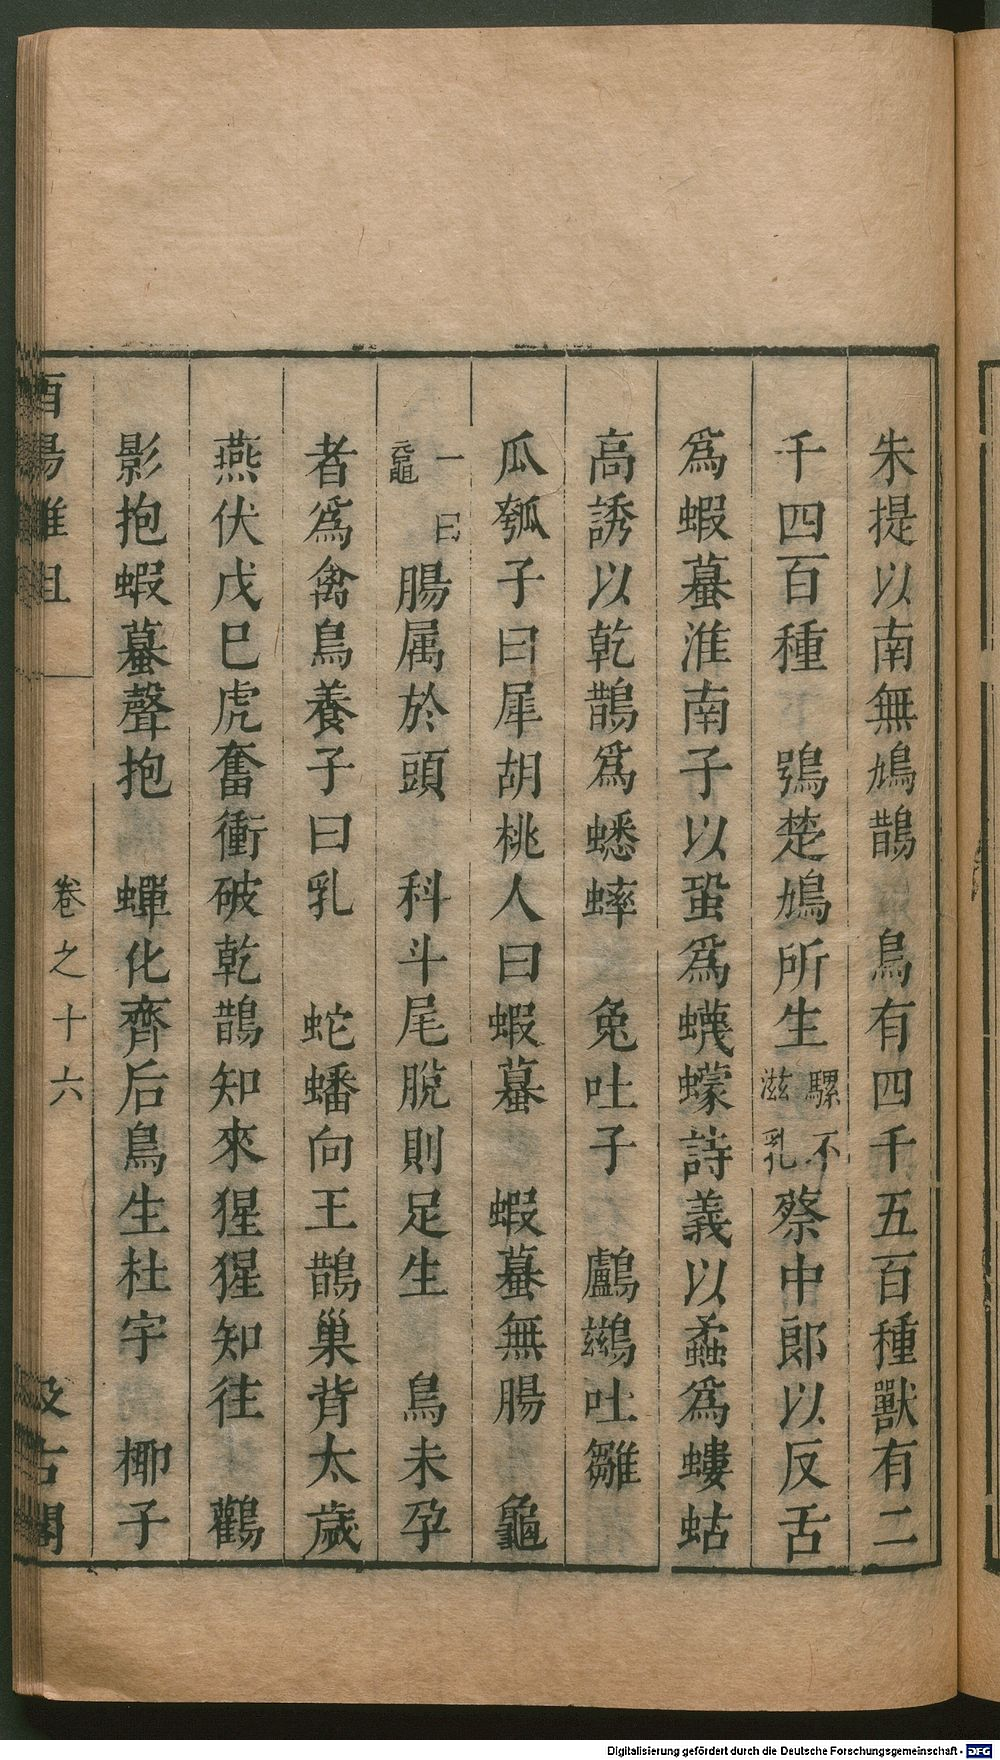 朱提以南無鳩鵲　鳥有四千五百種獸有二
千四百種　鴞楚鳩所生騾不滋乳蔡中郎以反舌
爲蝦蟇淮南子以蛩爲蠛蠓詩義以蟊爲螻蛄
高誘以乾鵲爲蟋蟀　兔吐子　鸕鷀吐雛
瓜瓠子曰犀胡桃人曰蝦蟇　蝦蟇無腸　龜
一曰黿腸属於頭　科斗尾脫則足生　鳥未孕
者爲禽鳥養子曰乳　蛇蟠向王鵲巢背太歲
燕伏戊巳虎奮衝破乾鵲知來猩猩知往　鸛
影抱蝦蟇聲抱　蟬化齊后鳥生杜宇　椰子
酉陽雜俎　卷之十六　汲古閣
Digitalisierung gefördert durch die Deutsche Forschungsgemeinschaft - DFG